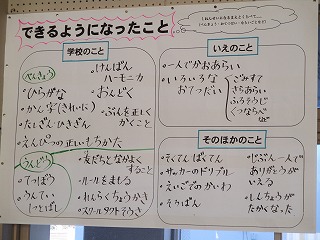 できるようになったこと
学校のこと
べんきょう
・ひらがな
・かん字(きれいに)
・たしざん・ひきざん
・えんぴつの正しいもちかた
・けんばん
ハーモニカ
・おんどく
・ぶんを正しく
かくこと
うんどう
・てつぼう
・うんてい
・なわとび
・友だちとなかよく
すること
・ルールをまもる
・れんらくちょうかき
いえのこと
・一人でかおあらい
・いろいろな
おてつだい
ごみすて
さらあらい
ふろそうじ
くつならべ
など
そのほかのこと
・そくてん ばくてん
・サッカーのドリブル
・えいごでのかいわ
・そろばん
・じぶん一人で
ありがとうが
いえる
・しんちょうが
たかくなった